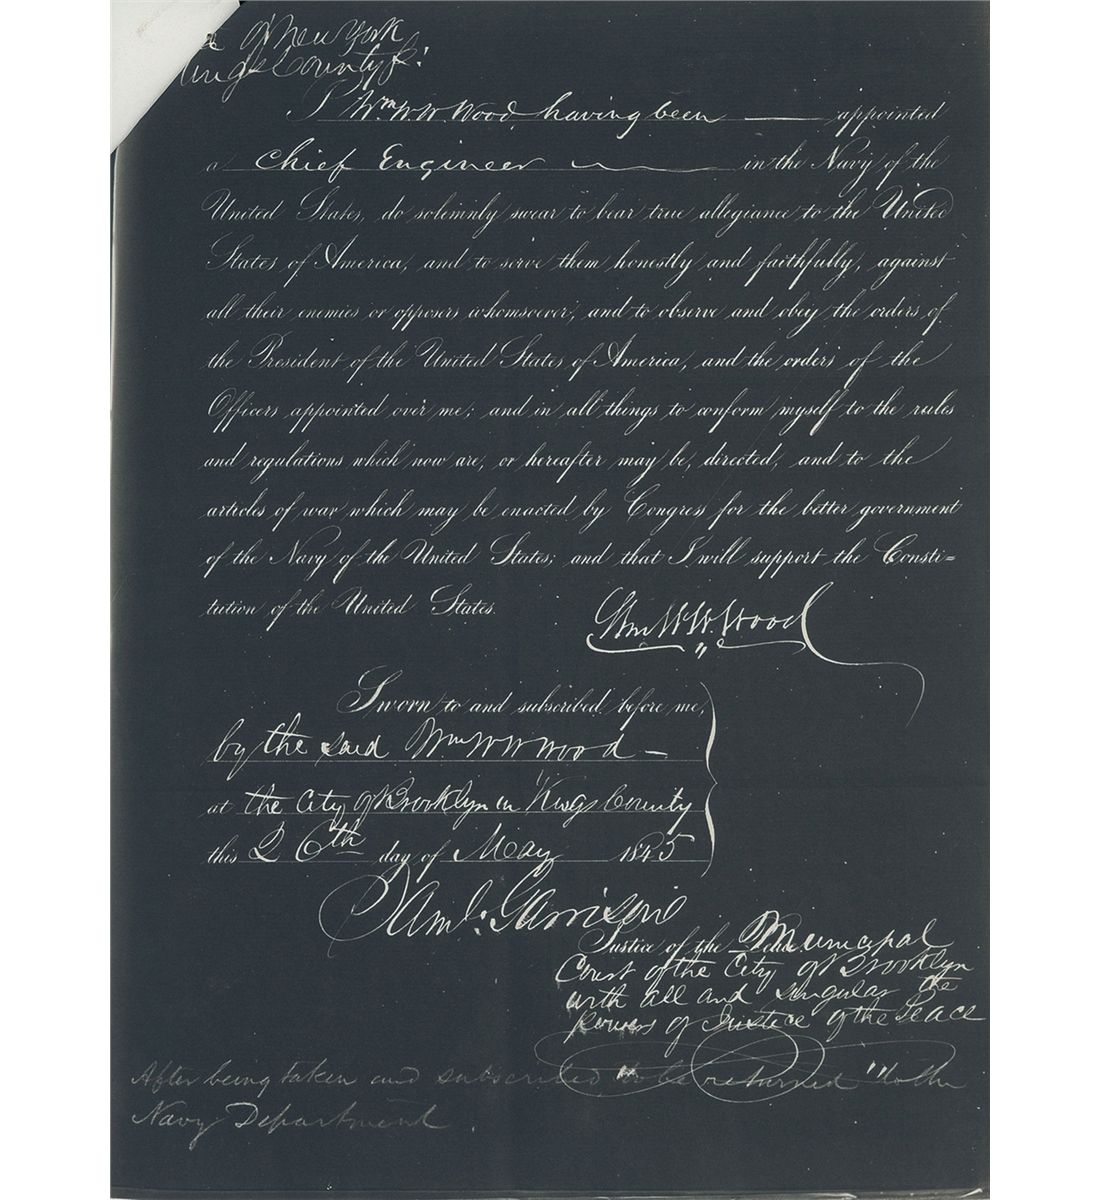 of New York
Kings County ss:
I Wm. W. W. Wood, having been appointed
a Chief Engineer in the Navy of the
United States, do solemnly swear to bear true allegiance to the United
States of America, and to serve them honestly and faithfully, against
all their enemies or opposers whomsoever; and to observe and obey the orders of
the President of the United States of America, and the orders of the
Officers appointed over me; and in all things to conform myself to the rules
and regulations which now are, or hereafter may be, directed, and to the
articles of war which may be enacted by Congress for the better government
of the Navy of the United States; and that I will support the Consti=
tution of the United States.
Wm. W. W. Wood
Sworn to and subscribed before me,
by the said Wm W W Wood
at the City of Brooklyn in Kings County
this 26th day of May 1845
Saml. Garrison
Justice of the Municipal
Court of the City of Brooklyn
with all and singular the
powers of Justice of the Peace
After being taken and subscribed to be returned to the
Navy Department